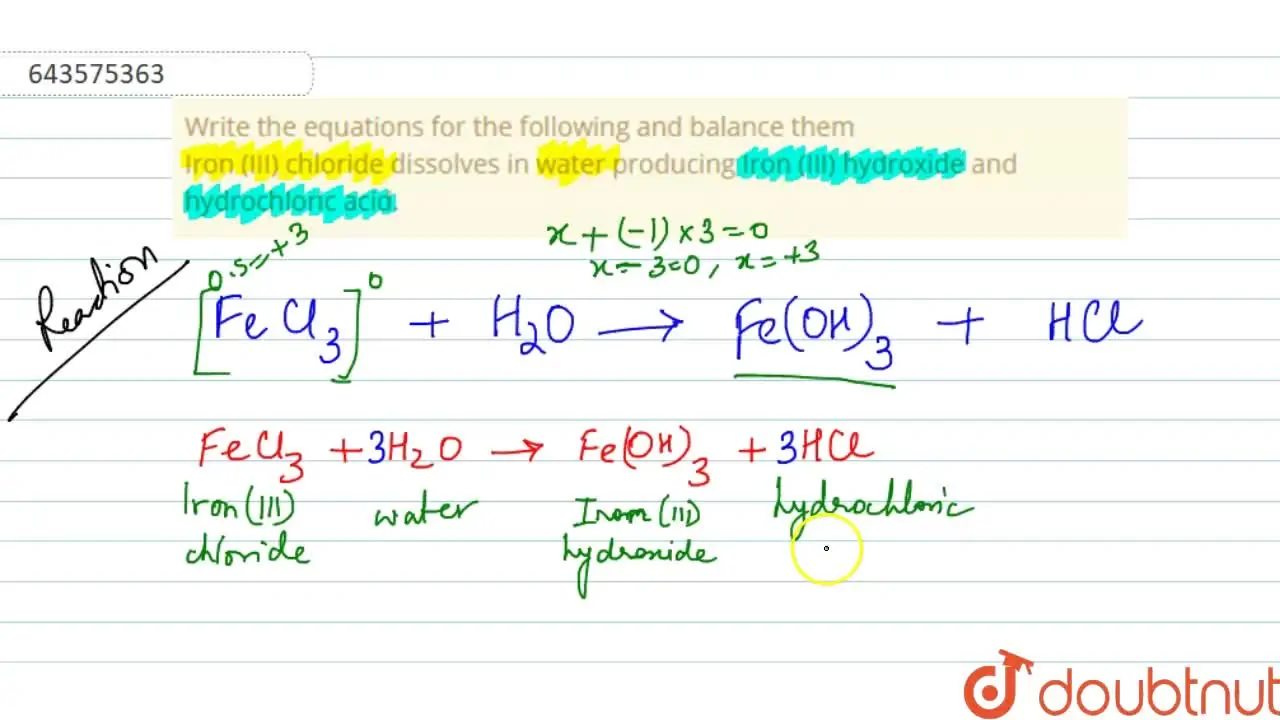 643575363
Write the equations for the following and balance them
Iron (III) chloride dissolves in water producing Iron (III) hydroxide and
hydrochloric acid.
x + (-1) × 3 = 0
x - 3 = 0, x = +3
O.S = +3
Reaction
[FeCl₃]⁰ + H₂O → Fe(OH)₃ + HCl
FeCl₃ + 3H₂O → Fe(OH)₃ + 3HCl
Iron (III) water Iron (III) hydrochloric
chloride hydroxide
doubtnut